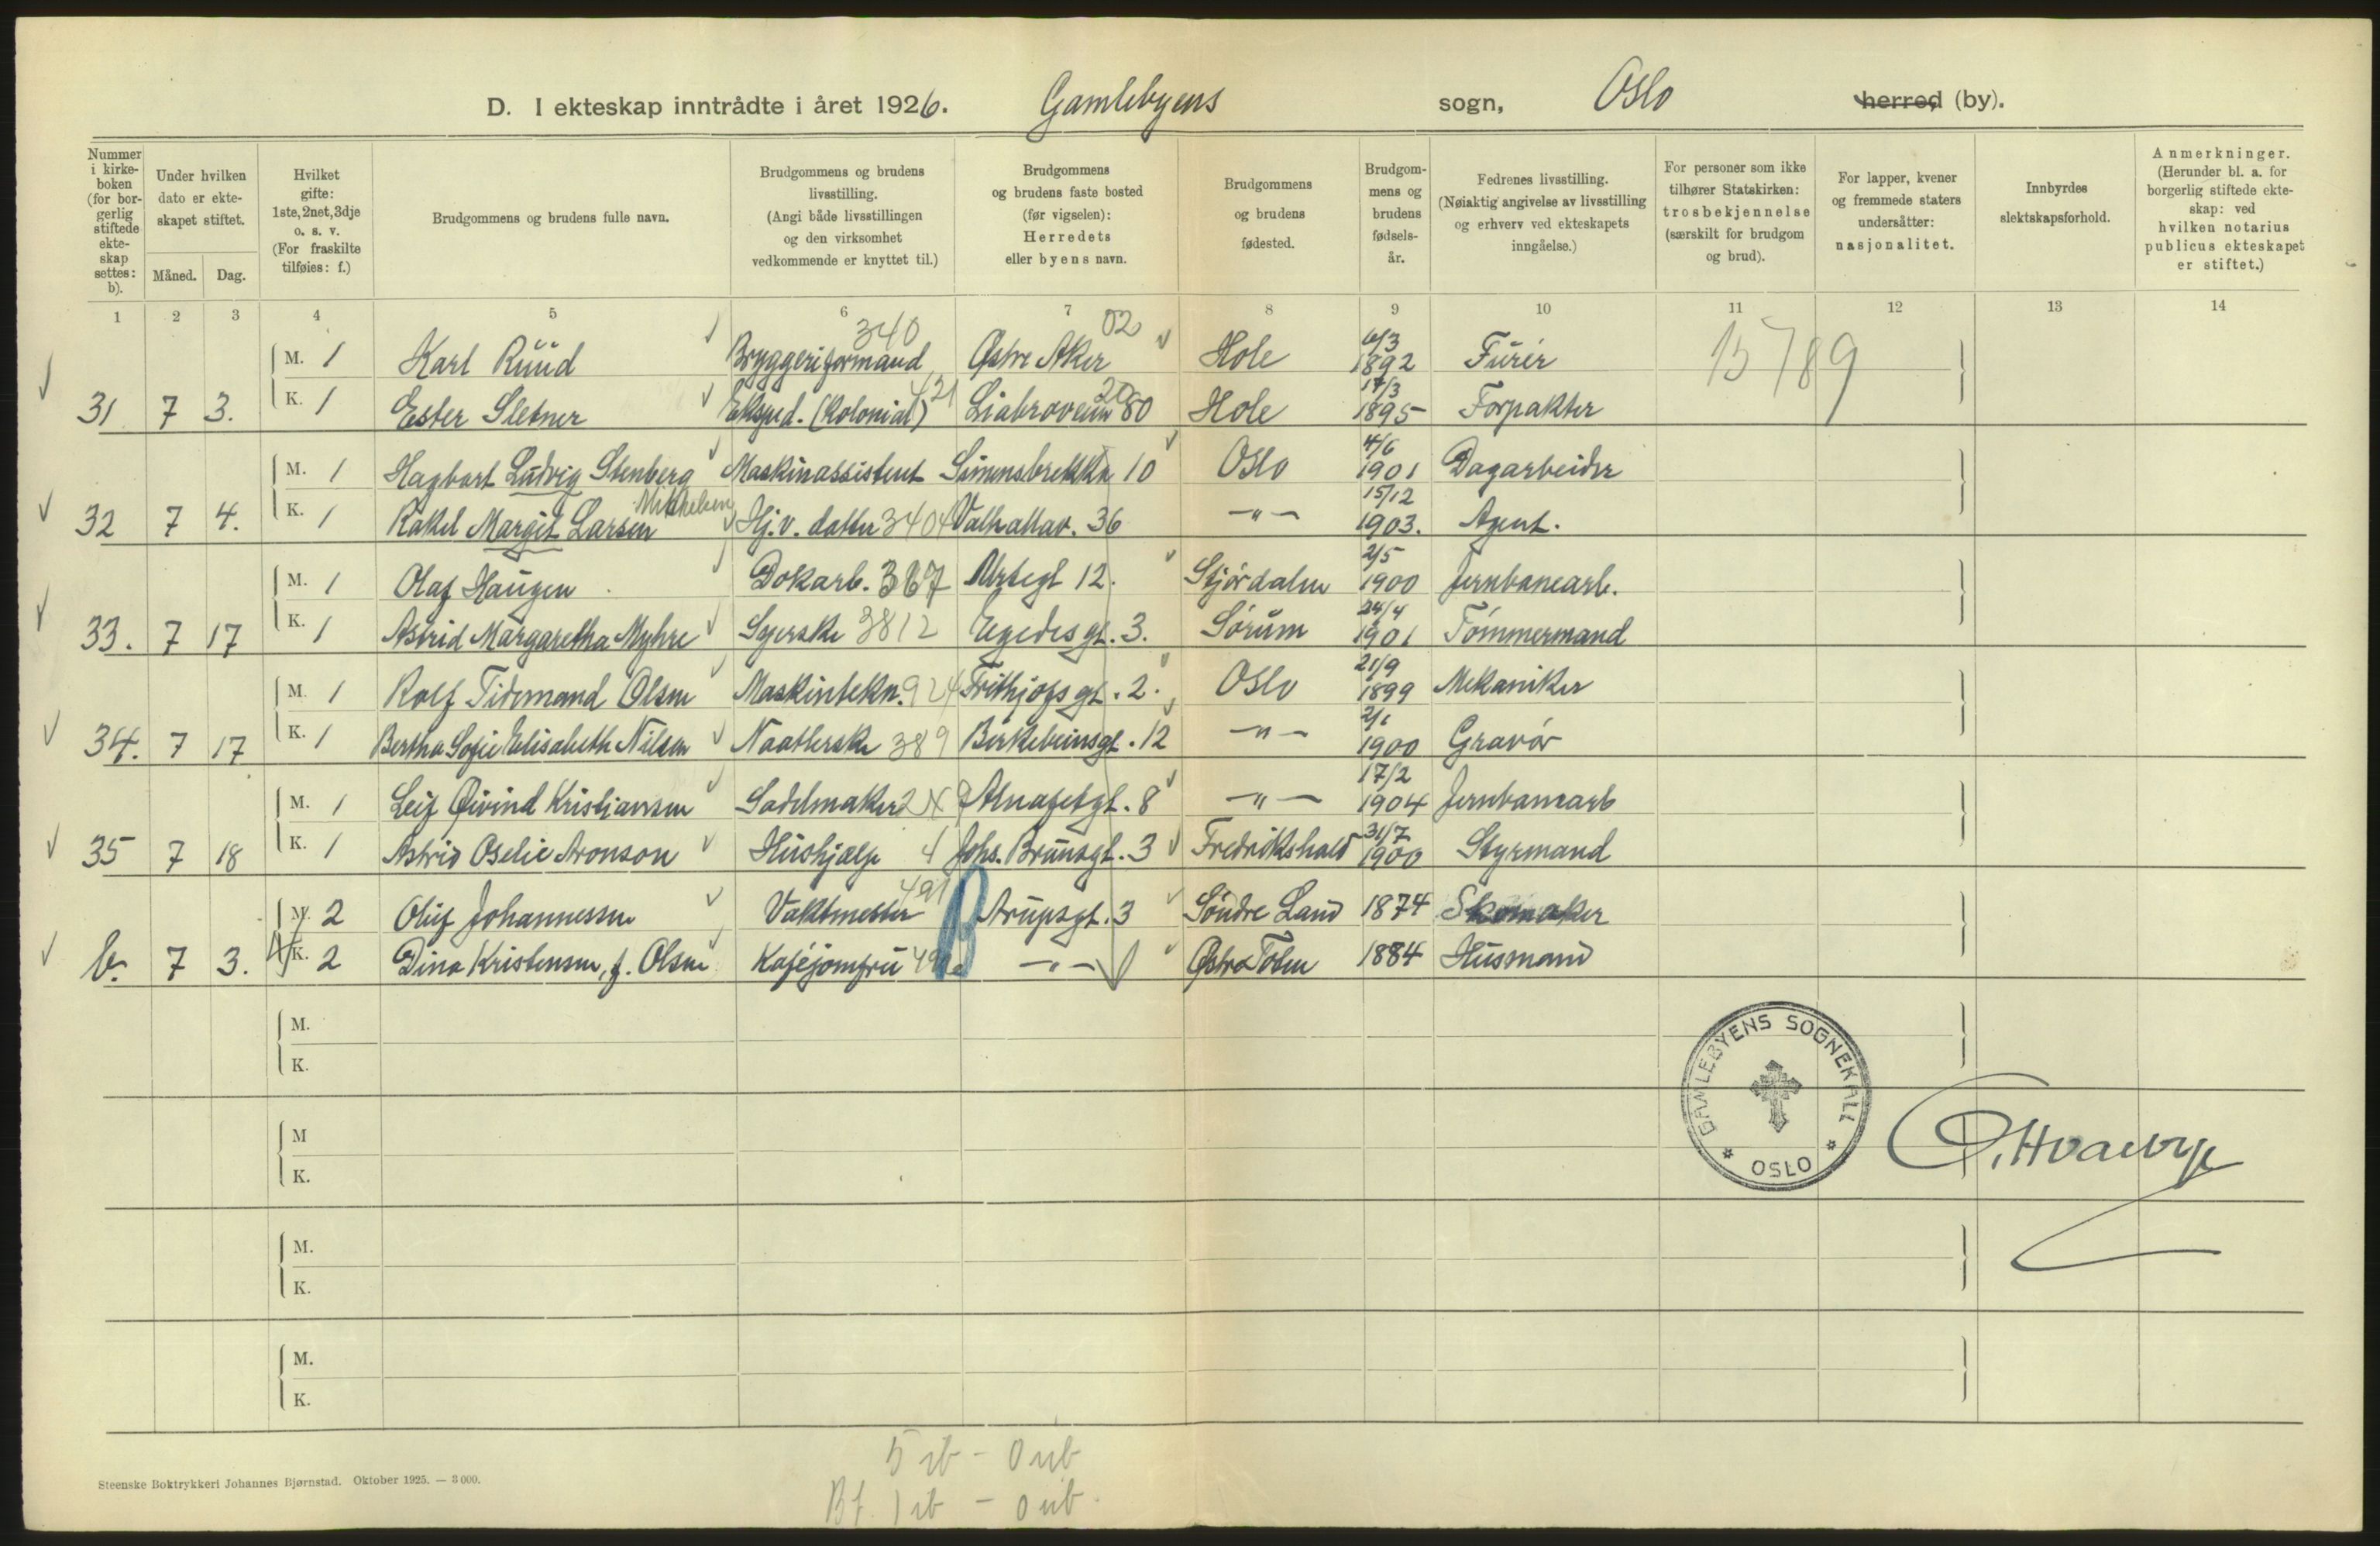 D. I ekteskap inntrådte i året 1926. Gamlebyens sogn, Oslo herred (by).
Nummer i kirkeboken (for borgerlig stiftede ekteskap settes: b).
Under hvilken dato er ekteskapet stiftet.
Måned. Dag.
Hvilket gifte: 1ste, 2net, 3dje o. s. v. (For fraskilte tilføies: f.)
Brudgommens og brudens fulle navn.
Brudgommens og brudens livsstilling. (Angi både livsstillingen og den virksomhet vedkommende er knyttet til.)
Brudgommens og brudens faste bosted (før vigselen): Herredets eller byens navn.
Brudgommens og brudens fødested.
Brudgommens og brudens fødselsår.
Fedrenes livsstilling. (Nøiaktig angivelse av livsstilling og erhverv ved ekteskapets inngåelse.)
For personer som ikke tilhører Statskirken: trosbekjennelse (særskilt for brudgom og brud).
For lapper, kvener og fremmede staters undersåtter: nasjonalitet.
Innbyrdes slektskapsforhold.
Anmerkninger. (Herunder bl. a. for borgerlig stiftede ekteskap: ved hvilken notarius publicus ekteskapet er stiftet.)
1 2 3 4 5 6 7 8 9 10 11 12 13 14
340 02 6/3
M. 1 Karl Ruud Bryggeriformand Østre Aker Hole 1892 Furér 15789
421 20 17/3
31 7 3. K. 1 Ester Sletner Eksped. (Kolonial) Liabroveien 80 Hole 1895 Forpakter
4/6
M. 1 Hagbart Ludvig Stenberg Maskinassistent Simensbrekka 10 Oslo 1901 Dagarbeider
Mikkelsen 15/12
32 7 4. K. 1 Rakel Margit Larsen Hj. v. datter 3404 Valhallav. 36 -"- 1903. Agent.
2/5
M. 1 Olaf Haugen Dokarb. 367 Urtegt 12. Stjørdalen 1900 Jernbanearb.
24/4
33. 7 17 K. 1 Astrid Margaretha Myhre Syerske 3812 Egedesgt. 3. Sørum 1901 Tømmermand
21/9
M. 1 Rolf Tidemand Olsen Maskintekn. 924 Frithjofsgt. 2. Oslo 1899 Mekaniker
2/1
34. 7 17 K. 1 Bertha Sofie Elisabeth Nilsen Naatlerske 389 Birkebeinsgt. 12 -"- 1900 Gravør
17/2
M. 1 Leif Øivind Kristiansen Sadelmaker Alnafetgt. 8 -"- 1904 Jernbanearb
31/7
35 7 18 K. 1 Astrid Oselie Aronson Hushjælp 4 Johs. Brunsgt. 3 Fredrikshald 1900 Styrmand
491
M. 2 Oluf Johannessen Vaktmester B Arupsgt. 3 Søndre Land 1874 Skomaker
b. 7 3. K. 2 Dina Kristensen, f. Olsen Kaféjomfru -"- Østre Toten 1884 Husmand
M.
K.
GAMLEBYENS SOGNEKALL * OSLO *
M
K.
M.
K.
M.
K.
5 ib - 0 ub
Bf. 1 ib - 0 ub.
Steenske Boktrykkeri Johannes Bjørnstad. Oktober 1925. — 3 000.